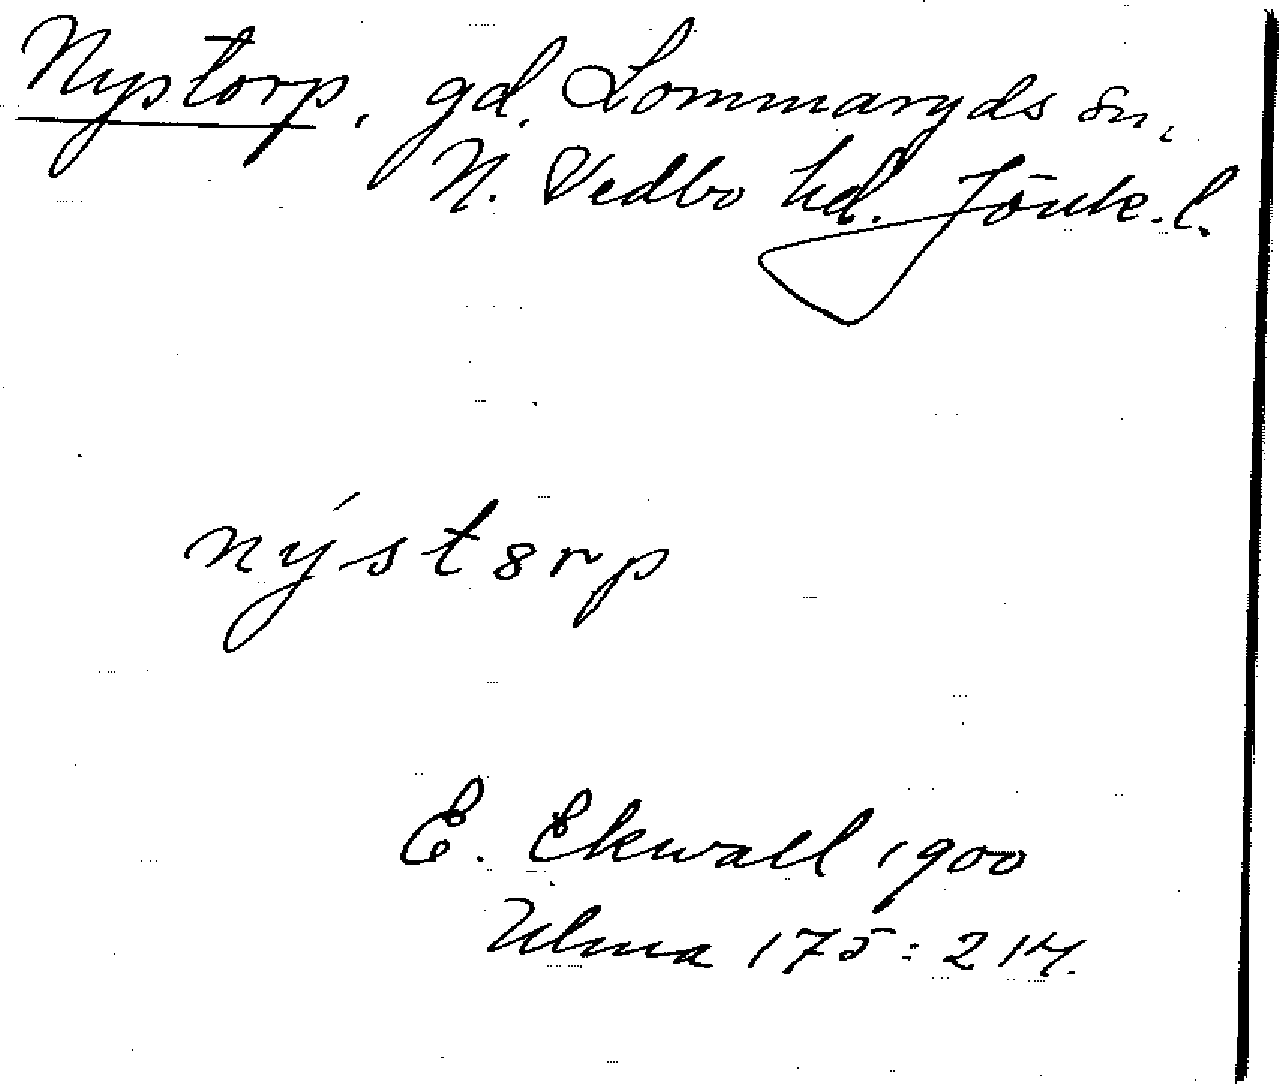 Nystorp, gd. Lommaryds sn,
N. Vedbo hd. Jönk. l.
nýst8rp
E. Ekwall 1900
Ulma 175:214.